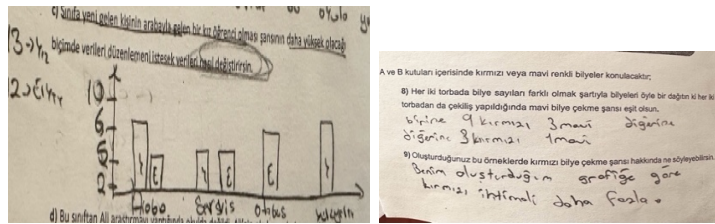 c) Sınıfa yeni gelen kişinin arabayla gelen bir kız öğrenci olması şansının daha yüksek olacağı
biçimde verileri düzenlemeni istesek verileri nasıl değiştirirsin.
10
6
5
2
E
E
E
Servis
Otobüs
d) Bu sınıftan Ali
A ve B kutuları içerisinde kırmızı veya mavi renkli bilyeler konulacaktır;
8) Her iki torbada bilye sayıları farklı olmak şartıyla bilyeleri öyle bir dağıtın ki her iki
torbadan da çekiliş yapıldığında mavi bilye çekme şansı eşit olsun.
birine 9 kırmızı 3 mavi diğerine
diğerine 3 kırmızı 1 mavi
9) Oluşturduğunuz bu örneklerde kırmızı bilye çekme şansı hakkında ne söyleyebilirsin
Benim oluşturduğum grafiğe göre
kırmızı ihtimali daha fazla.